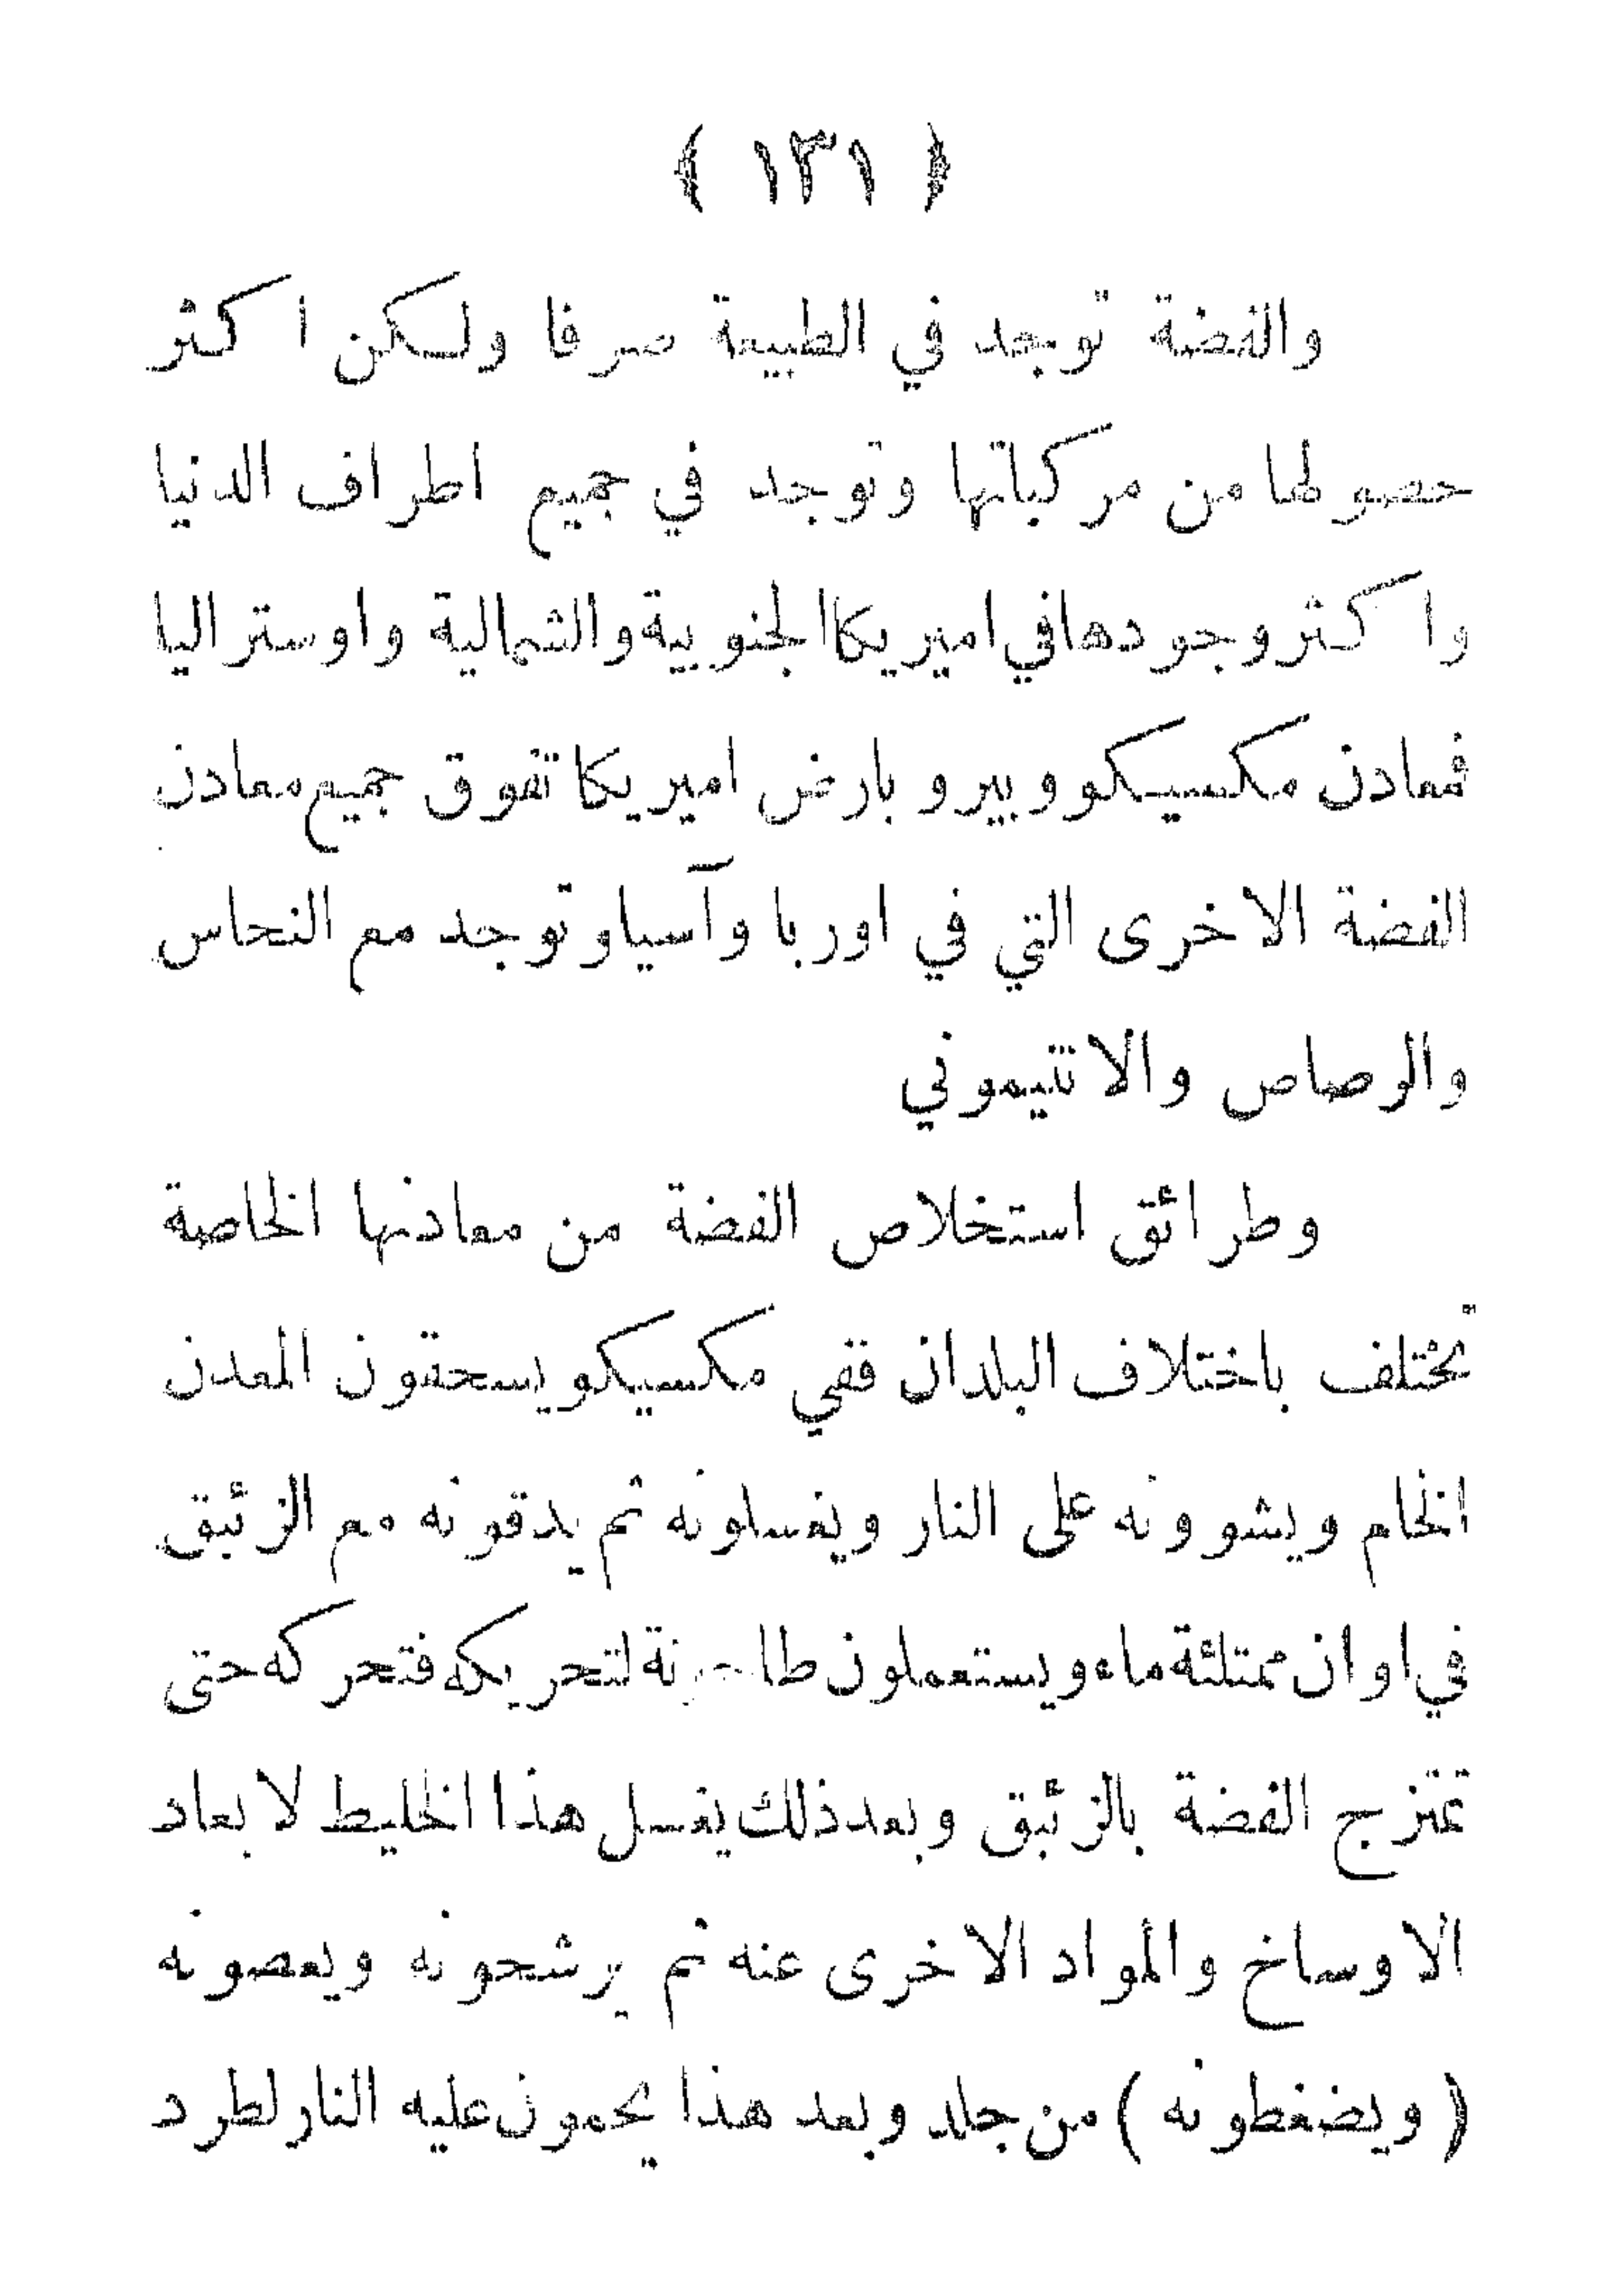 ﴿ ١٣١ ﴾
والفضة توجد في الطبيعة صرفا ولكن اكثر
حصولها من مركباتها وتوجد في جميع اطراف الدنيا
واكثر وجودها في اميريكا الجنوبية والشمالية واوستراليا
فمعادن مكسيكو وبيرو بارض اميريكا تفوق جميع معادن
الفضة الاخرى التي في اوربا وآسيا وتوجد مع النحاس
والرصاص والانتيموني
وطرائق استخلاص الفضة من معادنها الخاصة
تختلف باختلاف البلدان ففي مكسيكو يسحقون المعدن
الخام ويشوونه على النار ويغسلونه ثم يدقونه مع الزئبق
في اوان ممتلئة ماء ويستعملون طاحونة لتحريكه فتحركه حتى
تمتزج الفضة بالزئبق وبعد ذلك يغسل هذا الخليط لابعاد
الاوساخ والمواد الاخرى عنه ثم يرشحونه ويعصونه
( ويضغطونه ) من جلد وبعد هذا يحمون عليه النار لطرد